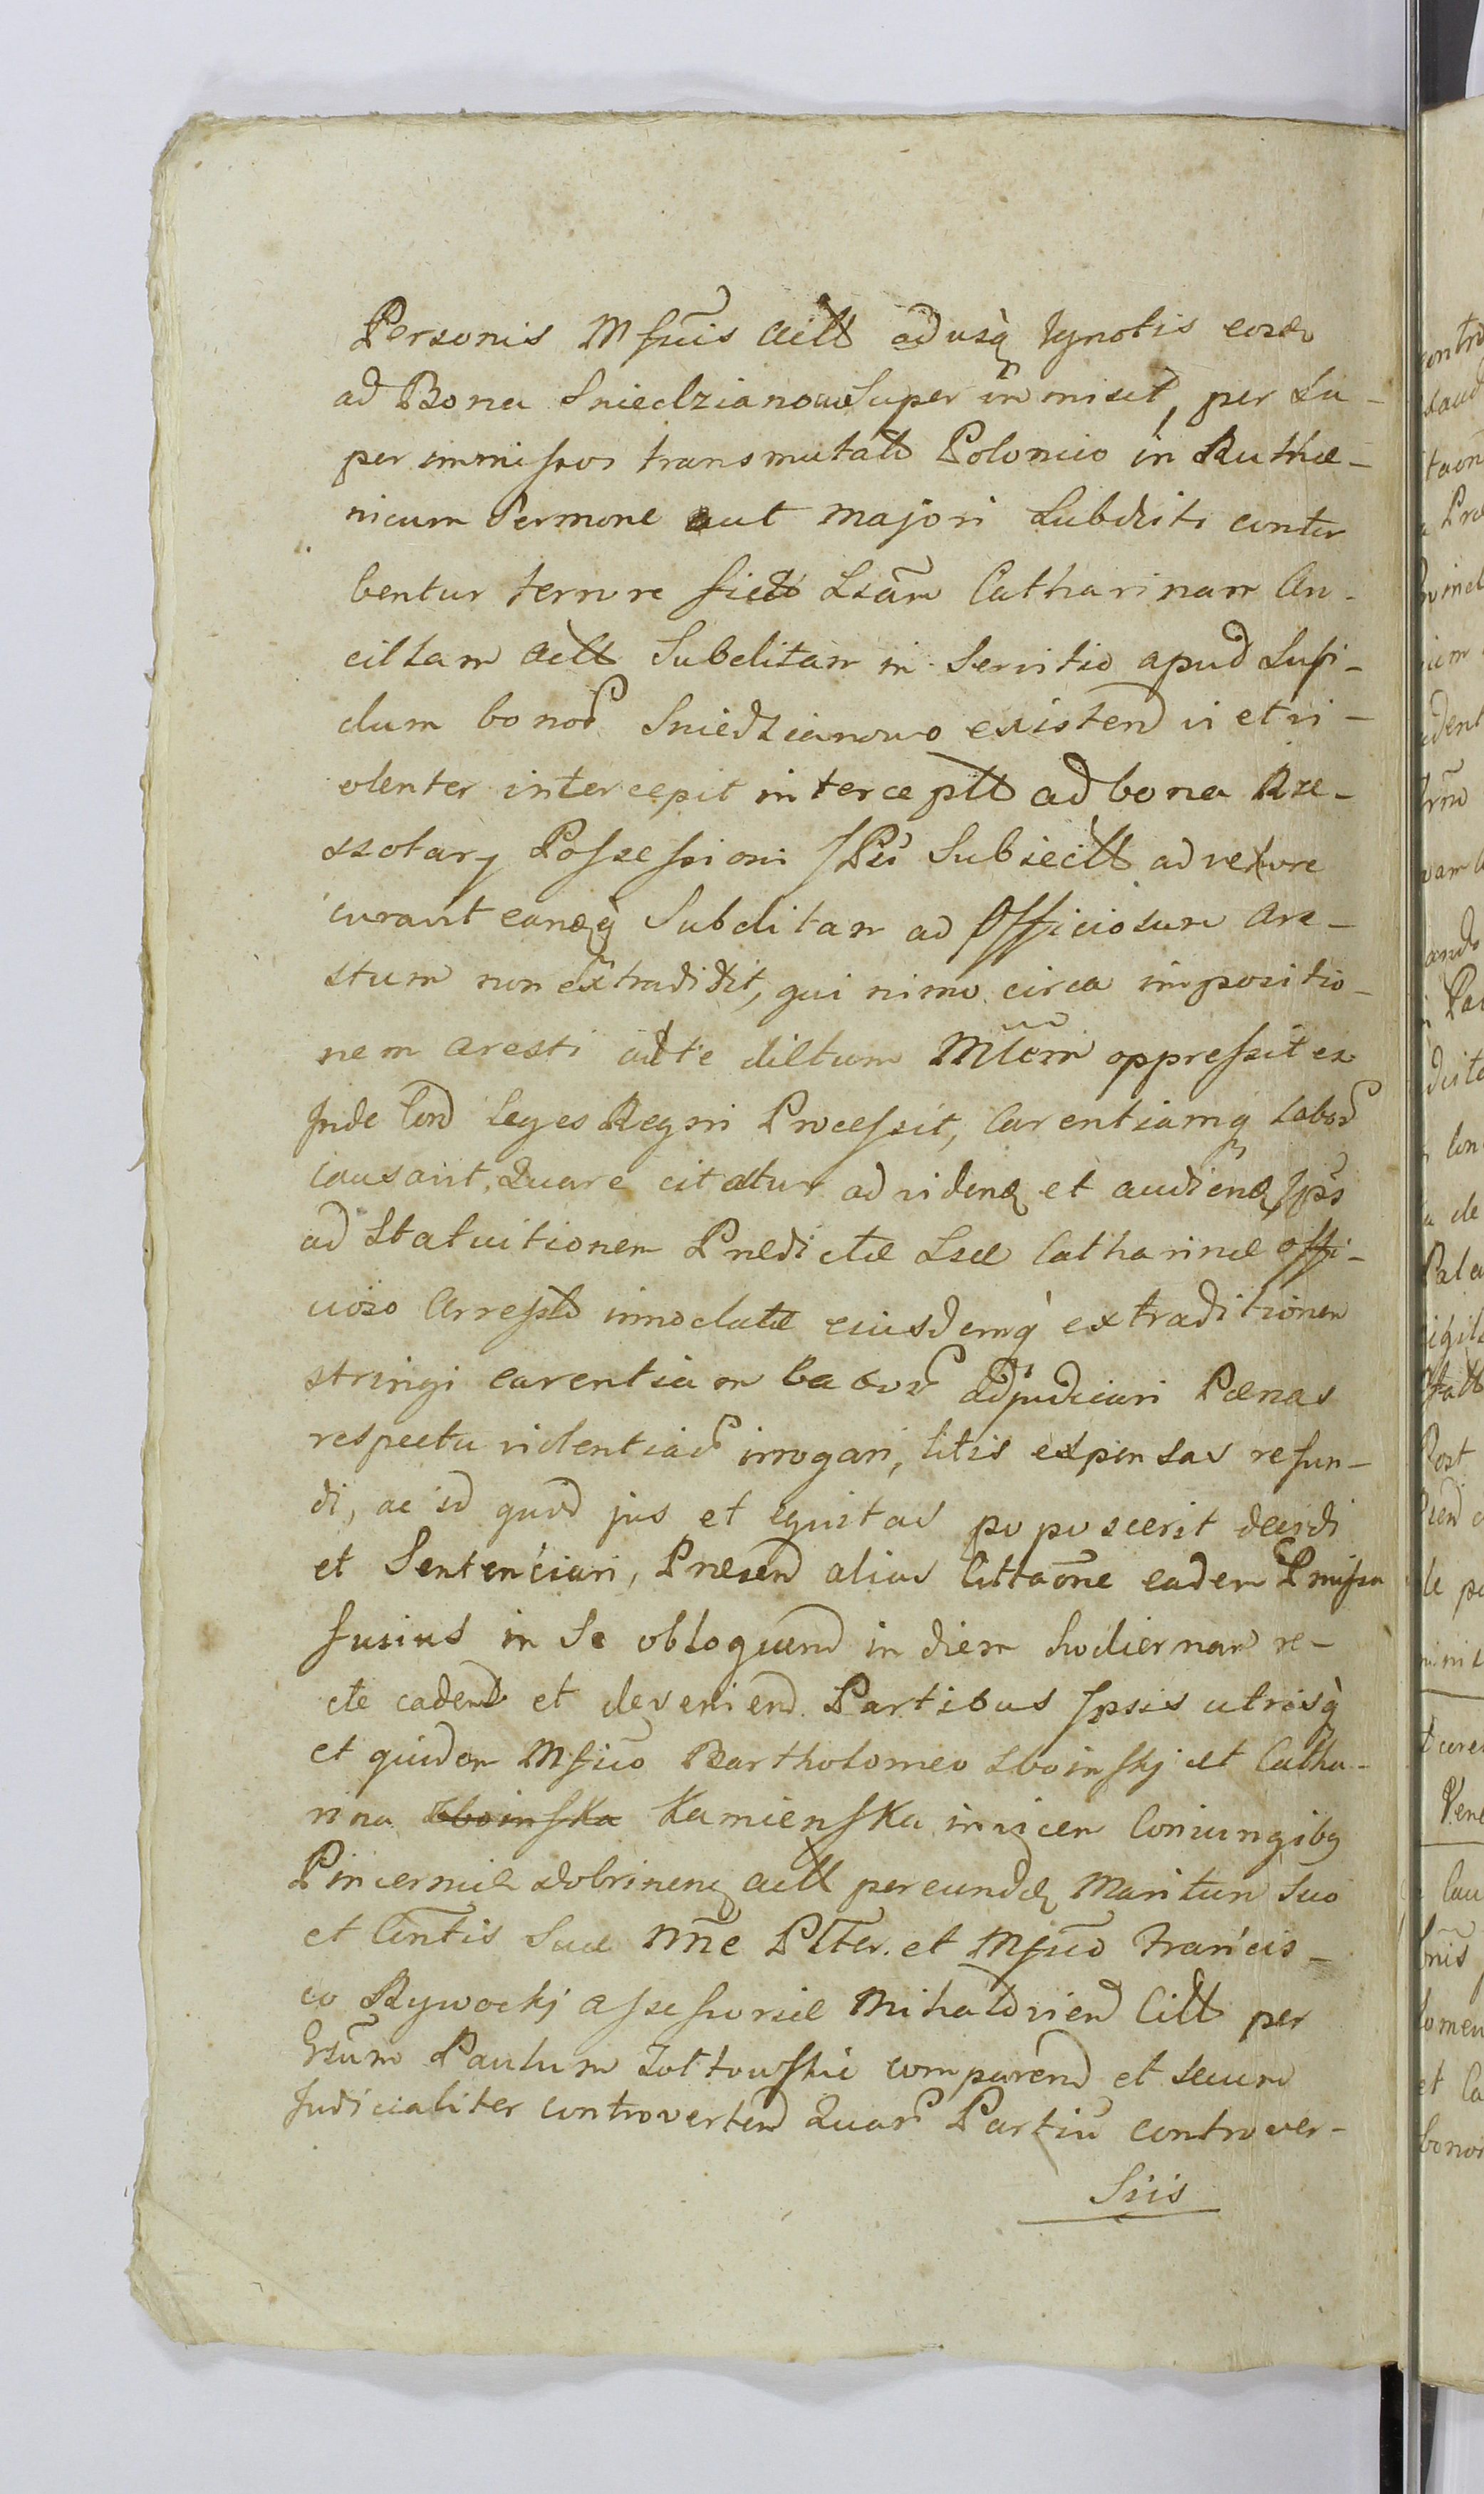 Personis Mfcis Actt adusq Ignotis eosdo
ad Bona Sniedzianowo Super im misit, per Su-
per immissos transmutatt Polonico in Ruthæ-
nicum Sermone aut majori Subditi contur
bentur terrore fictt Lsam Catharinam An-
cillam Actt Subditam in Servitio apud Supi-
dum bonor Sniedzianowo existend vi et vi-
olenter intercepit interceptt ad bona Rze-
szotary Possessioni Subiectt ad
curavit eamq Subditam ad Officiosum Are-
stum non extradidit, qui nimo circa impositio-
nem aresti ante dictum oppressit ex
Inde Cond Leges Regni Processit, Carentiamq Labor
causavit, Quare citatur ad videnq et audienq Ips
ad Statuitionem Predictæ Lsæ Catharinæ offi-
cioso Arrestt innodatæ eiusdemq extraditionem
stringi carentiam Labor adjudicari Pænas
respectu violentiar irrogari, litis expensas refun-
di, ac id quod jus et equitas poposcerit decidi
et Sentenciari, Præsend alias Cittaone eadem Pmissa
fusius in Se obloquend in diem hodiernam re-
cte cadend et deveniend Partibus Ipsis utrisq
et quidem Mfico Bartholomeo Zboinskj et Catha-
rina Zboinska Kamienska invicem Coniungibq
Pincerniæ Dobrinenq Actt per eundq Maritum Suo
et Cintis Suæ Nne Pltter. et Mfico Francis-
co Rywockj assessoriæ Mihaloviend Citt per
Gsum Paulum Zoltowski comparend et Secum
Judicialiter controvertend Quar Partiu controver-
Siis